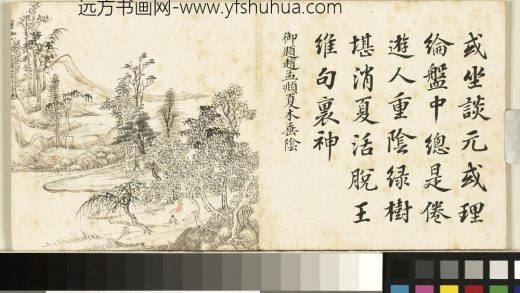 远方书画网-www.yfshuhua.com
或坐談元或理
綸盤中總是倦
遊人重陰綠樹
堪消夏活脫王
維句裏神
御題趙孟頫夏木垂陰